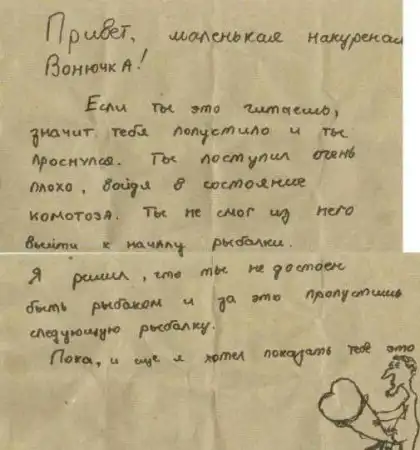 Привет, маленькая накуреная
Вонючка!
Если ты это читаешь,
значит тебя попустило и ты
проснулся. Ты поступил очень
плохо, войдя в состояние
коматоза. Ты не смог из него
выйти к началу рыбалки.
Я решил, что ты не достоен
быть рыбаком и за это пропустишь
следующую рыбалку.
Пока, и еще я хотел показать тебе это